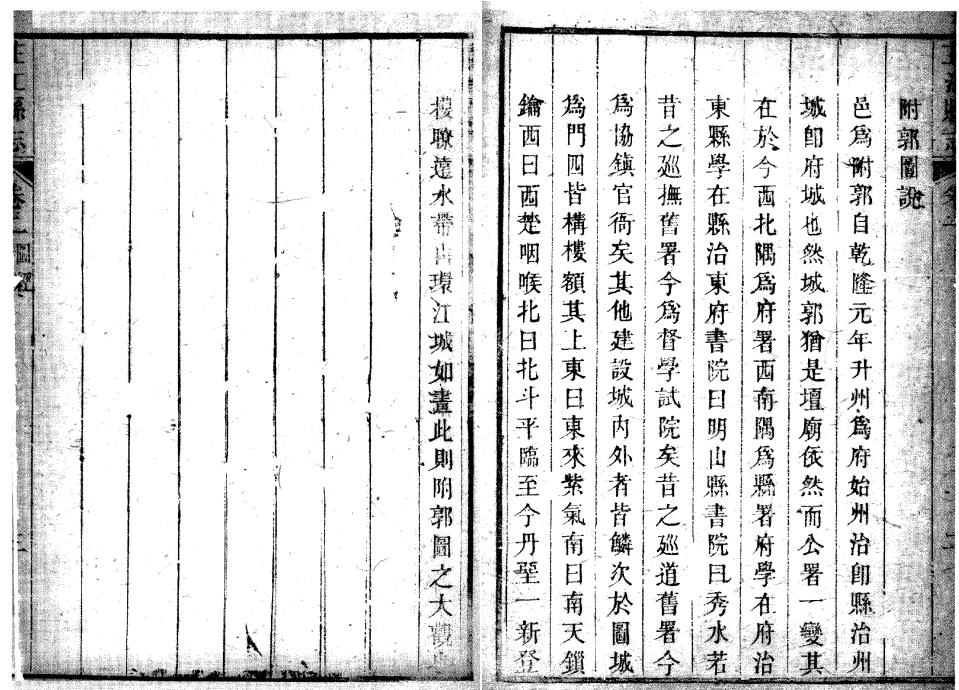 附郭圖說
邑爲附郭自乾隆元年升州爲府始州治卽縣治州
城卽府城也然城郭猶是壇廟依然而公署一變其
在於今西北隅爲府署西南隅爲縣署府學在府治
東縣學在縣治東府書院曰明山縣書院曰秀水若
昔之廵撫舊署今爲督學試院矣昔之廵道舊署今
爲協鎭官衙矣其他建設城內外者皆鱗次於圖城
爲門四皆構樓額其上東曰東來紫氣南曰南天鎖
鑰西曰西楚咽喉北曰北斗平臨至今丹堊一新登
樓瞭遠水帶山環江城如畫此則附郭圖之大觀
縣志